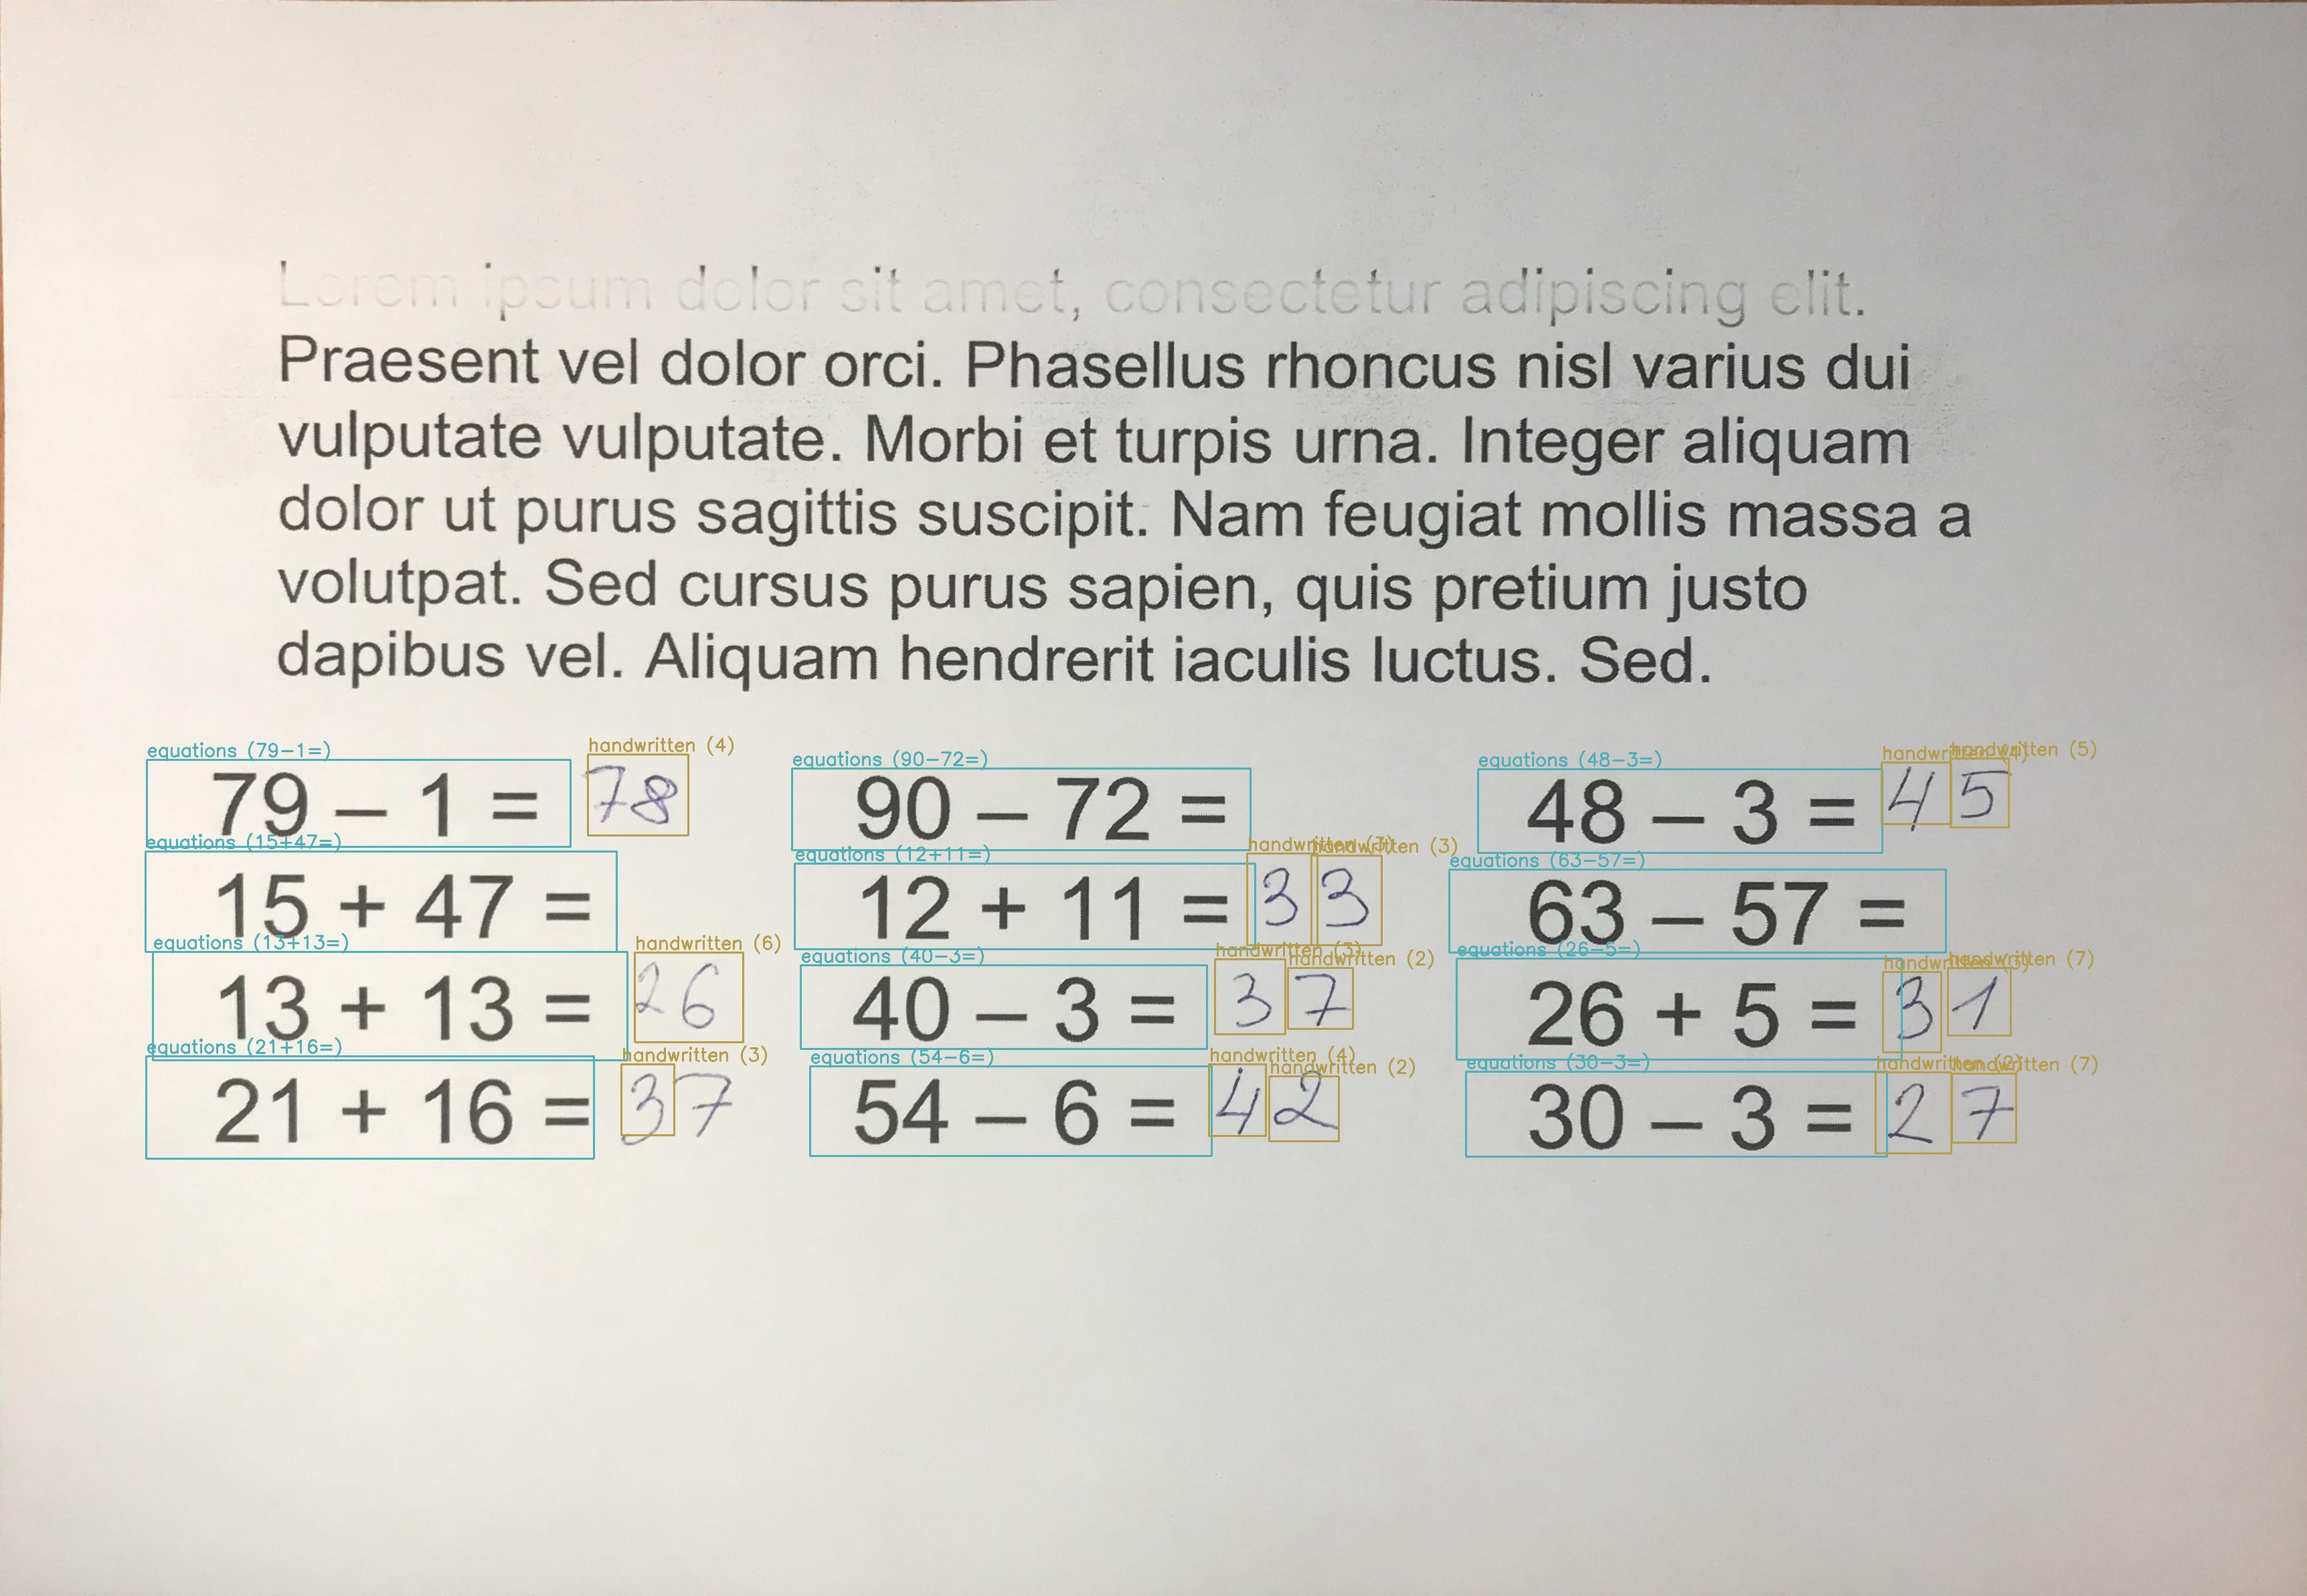 Lorem ipsum dolor sit amet, consectetur adipiscing elit.
Praesent vel dolor orci. Phasellus rhoncus nisl varius dui
vulputate vulputate. Morbi et turpis urna. Integer aliquam
dolor ut purus sagittis suscipit. Nam feugiat mollis massa a
volutpat. Sed cursus purus sapien, quis pretium justo
dapibus vel. Aliquam hendrerit iaculis luctus. Sed.
equations (79-1=) handwritten (4) equations (90-72=) equations (48-3=) handwritten (4) handwritten (5)
79 – 1 = 78 90 – 72 = 48 – 3 = 45
equations (15+47=) equations (12+11=) handwritten (3) handwritten (3) equations (63-57=)
15 + 47 = 12 + 11 = 33 63 – 57 =
equations (13+13=) handwritten (6) equations (40-3=) handwritten (3) handwritten (2) equations (26-5=) handwritten (3) handwritten (7)
13 + 13 = 26 40 – 3 = 37 26 + 5 = 31
equations (21+16=) handwritten (3) equations (54-6=) handwritten (4) handwritten (2) equations (30-3=) handwritten (2) handwritten (7)
21 + 16 = 37 54 – 6 = 42 30 – 3 = 27